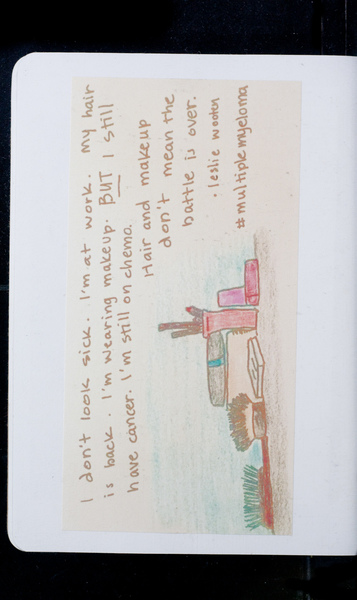 I don't look sick. I'm at work. My hair
is back. I'm wearing makeup. BUT I still
have cancer. I'm still on chemo.
Hair and makeup
don't mean the
battle is over.
· leslie wooten
#multiplemyeloma